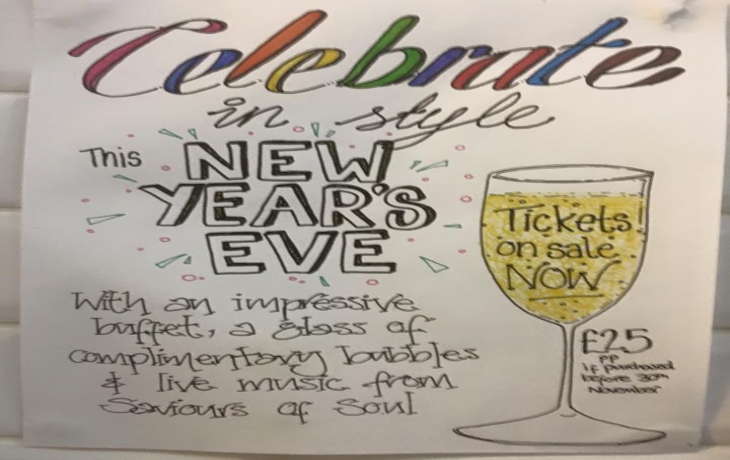 Celebrate
in style
This NEW
YEAR'S
EVE
With an impressive
buffet, a glass of
complimentary bubbles
& live music from
Saviours of Soul
Tickets
on sale
NOW
£25
PP
If purchased
before 30th
November